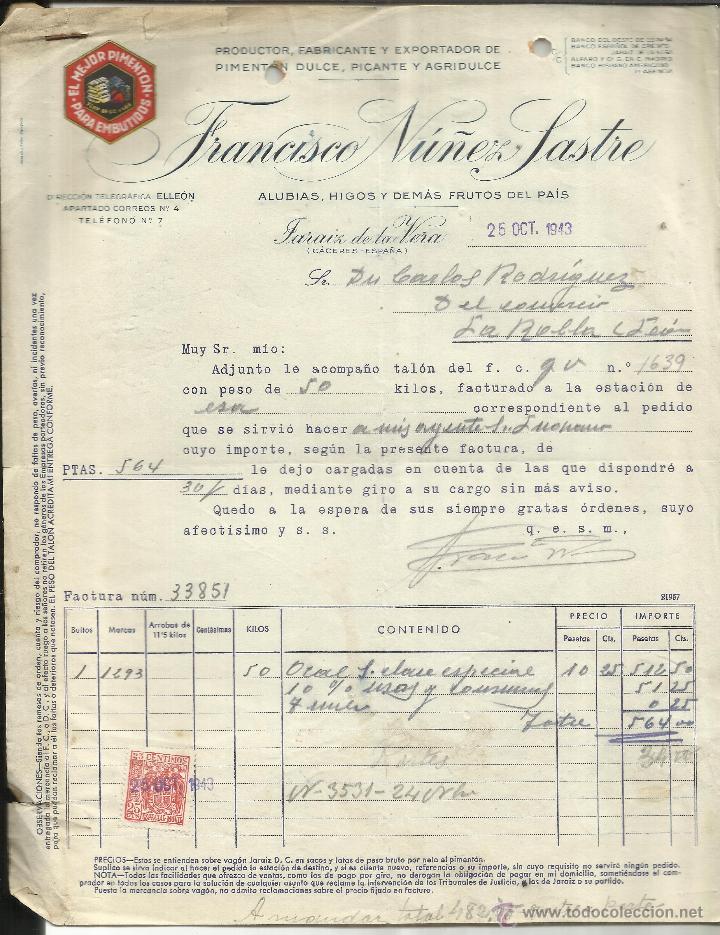 EL MEJOR PIMENTÓN
PARA EMBUTIDOS
PRODUCTOR, FABRICANTE Y EXPORTADOR DE
PIMENTÓN DULCE, PICANTE Y AGRIDULCE
BANCO DEL OESTE DE ESPAÑA
BANCO ESPAÑOL DE CREDITO
JARAIZ DE LA VERA
ALFARO Y Cª S. EN C. MADRID
BANCO HISPANO AMERICANO
Francisco Núñez Sastre
DIRECCIÓN TELEGRÁFICA ELLEÓN
APARTADO CORREOS Nº 4
TELÉFONO Nº 7
ALUBIAS, HIGOS Y DEMÁS FRUTOS DEL PAÍS
Jaraiz de la Vera
(CÁCERES-ESPAÑA)
25 OCT. 1943
Sr. Dn Carlos Rodríguez
Del comercio
La Robla (León
Muy Sr. mío:
Adjunto le acompaño talón del f. c. g v n.º 1639
con peso de 50 kilos, facturado a la estación de
esa correspondiente al pedido
que se sirvió hacer a mis agente Sr.
cuyo importe, según la presente factura, de
PTAS. 564 le dejo cargadas en cuenta de las que dispondré a
30/ días, mediante giro a su cargo sin más aviso.
Quedo a la espera de sus siempre gratas órdenes, suyo
afectísimo y s. s. q. e. s. m.,
Factura núm. 33851
21957
Bultos Marcas Arrobas de 11'5 kilos Centésimas KILOS CONTENIDO PRECIO Pesetas Cts. IMPORTE Pesetas Cts.
1 1293 50 Ocal 1ª clase especial 10 25 512 50
10 % usos y consumos 51 25
Timbre 0 25
Total 564 00
25 CENTIMOS
25 OCT. 1943
N-3531-24
OBSERVACIONES—Siendo las remesas de orden, cuenta y riesgo del comprador, no respondo de faltas de peso, averías, ni incidentes una vez
entregada la mercancía al F. C. o D. C. y al efecto ruego a los señores no retiren los géneros de las Empresas porteadoras, sin previo reconocimiento,
para que puedan reclamar a él las faltas o deterioros que notasen. EL PESO DEL TALON ACREDITA MI ENTREGA CONFORME.
PRECIOS—Estos se entienden sobre vagón Jaraiz D. C. en sacos y latas de peso bruto por neto el pimentón.
Suplico se sirva indicar al hacer el pedido la estación de destino, y si es cuenta nueva, referencias o su importe, sin cuyo requisito no serviré ningún pedido.
NOTA—Todas las facilidades que ofrezco de ventas, como las de pago por giro, no derogan la obligación de pagar en mi domicilio, sometiéndose el com-
prador en todos los casos para la solución de cualquier asunto que reclame la intervención de los Tribunales de Justicia, a los de Jaraiz o su partido.
Puesta la mercancía sobre vagón, no admito reclamaciones sobre el precio fijado en factura.
A mandar total 482
todocoleccion.net